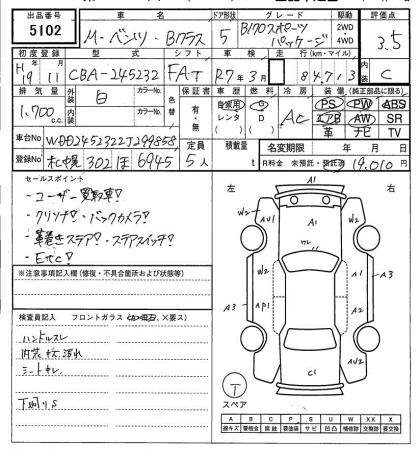 出品番号 車名 ドア形状 グレード 駆動 評価点
5102 M・ベンツ・Bクラス 5 B170スポーツパッケージ 2WD 4WD 3.5
初度登録 型式 シフト 車検 走行(km・マイル) 内装
H19 11 CBA-245232 FAT R7年3月 84,713 C
排気量 外装 色 カラーNo. 色替 保証書 車歴 燃料 冷房 装備(純正部品に限る)
1,700 c.c. 白 有・無 自家用 レンタ G D AC PS PW ABS
内装 カラーNo. エアB AW SR
革 ナビ TV
車台No WDD2452322J299858 定員 積載量 名変期限 年 月 日
登録No 札幌302ほ6945 5人 t R料金 未預託・預託済 19,010円
セールスポイント
・ユーザー買取車!
・クリソナ!・バックカメラ!
・革巻きステア!・ステアスイッチ!
・Etc!
※注意事項記入欄(修復・不具合箇所および状態等)
検査員記入 フロントガラス(△=飛石、×要ス)
ハンドルスレ
内装キズ、汚れ
シートキレ
下廻りS
左 右
A1
A1
AU1
W2
ワレ
W2
W2
A3
AP1
A2
A3
A1
AU2
C1
T
スペア
A B C P S U W X XX
線キズ 要板金 腐蝕 要塗装 サビ 凹凸 補修跡 要交換 交換済